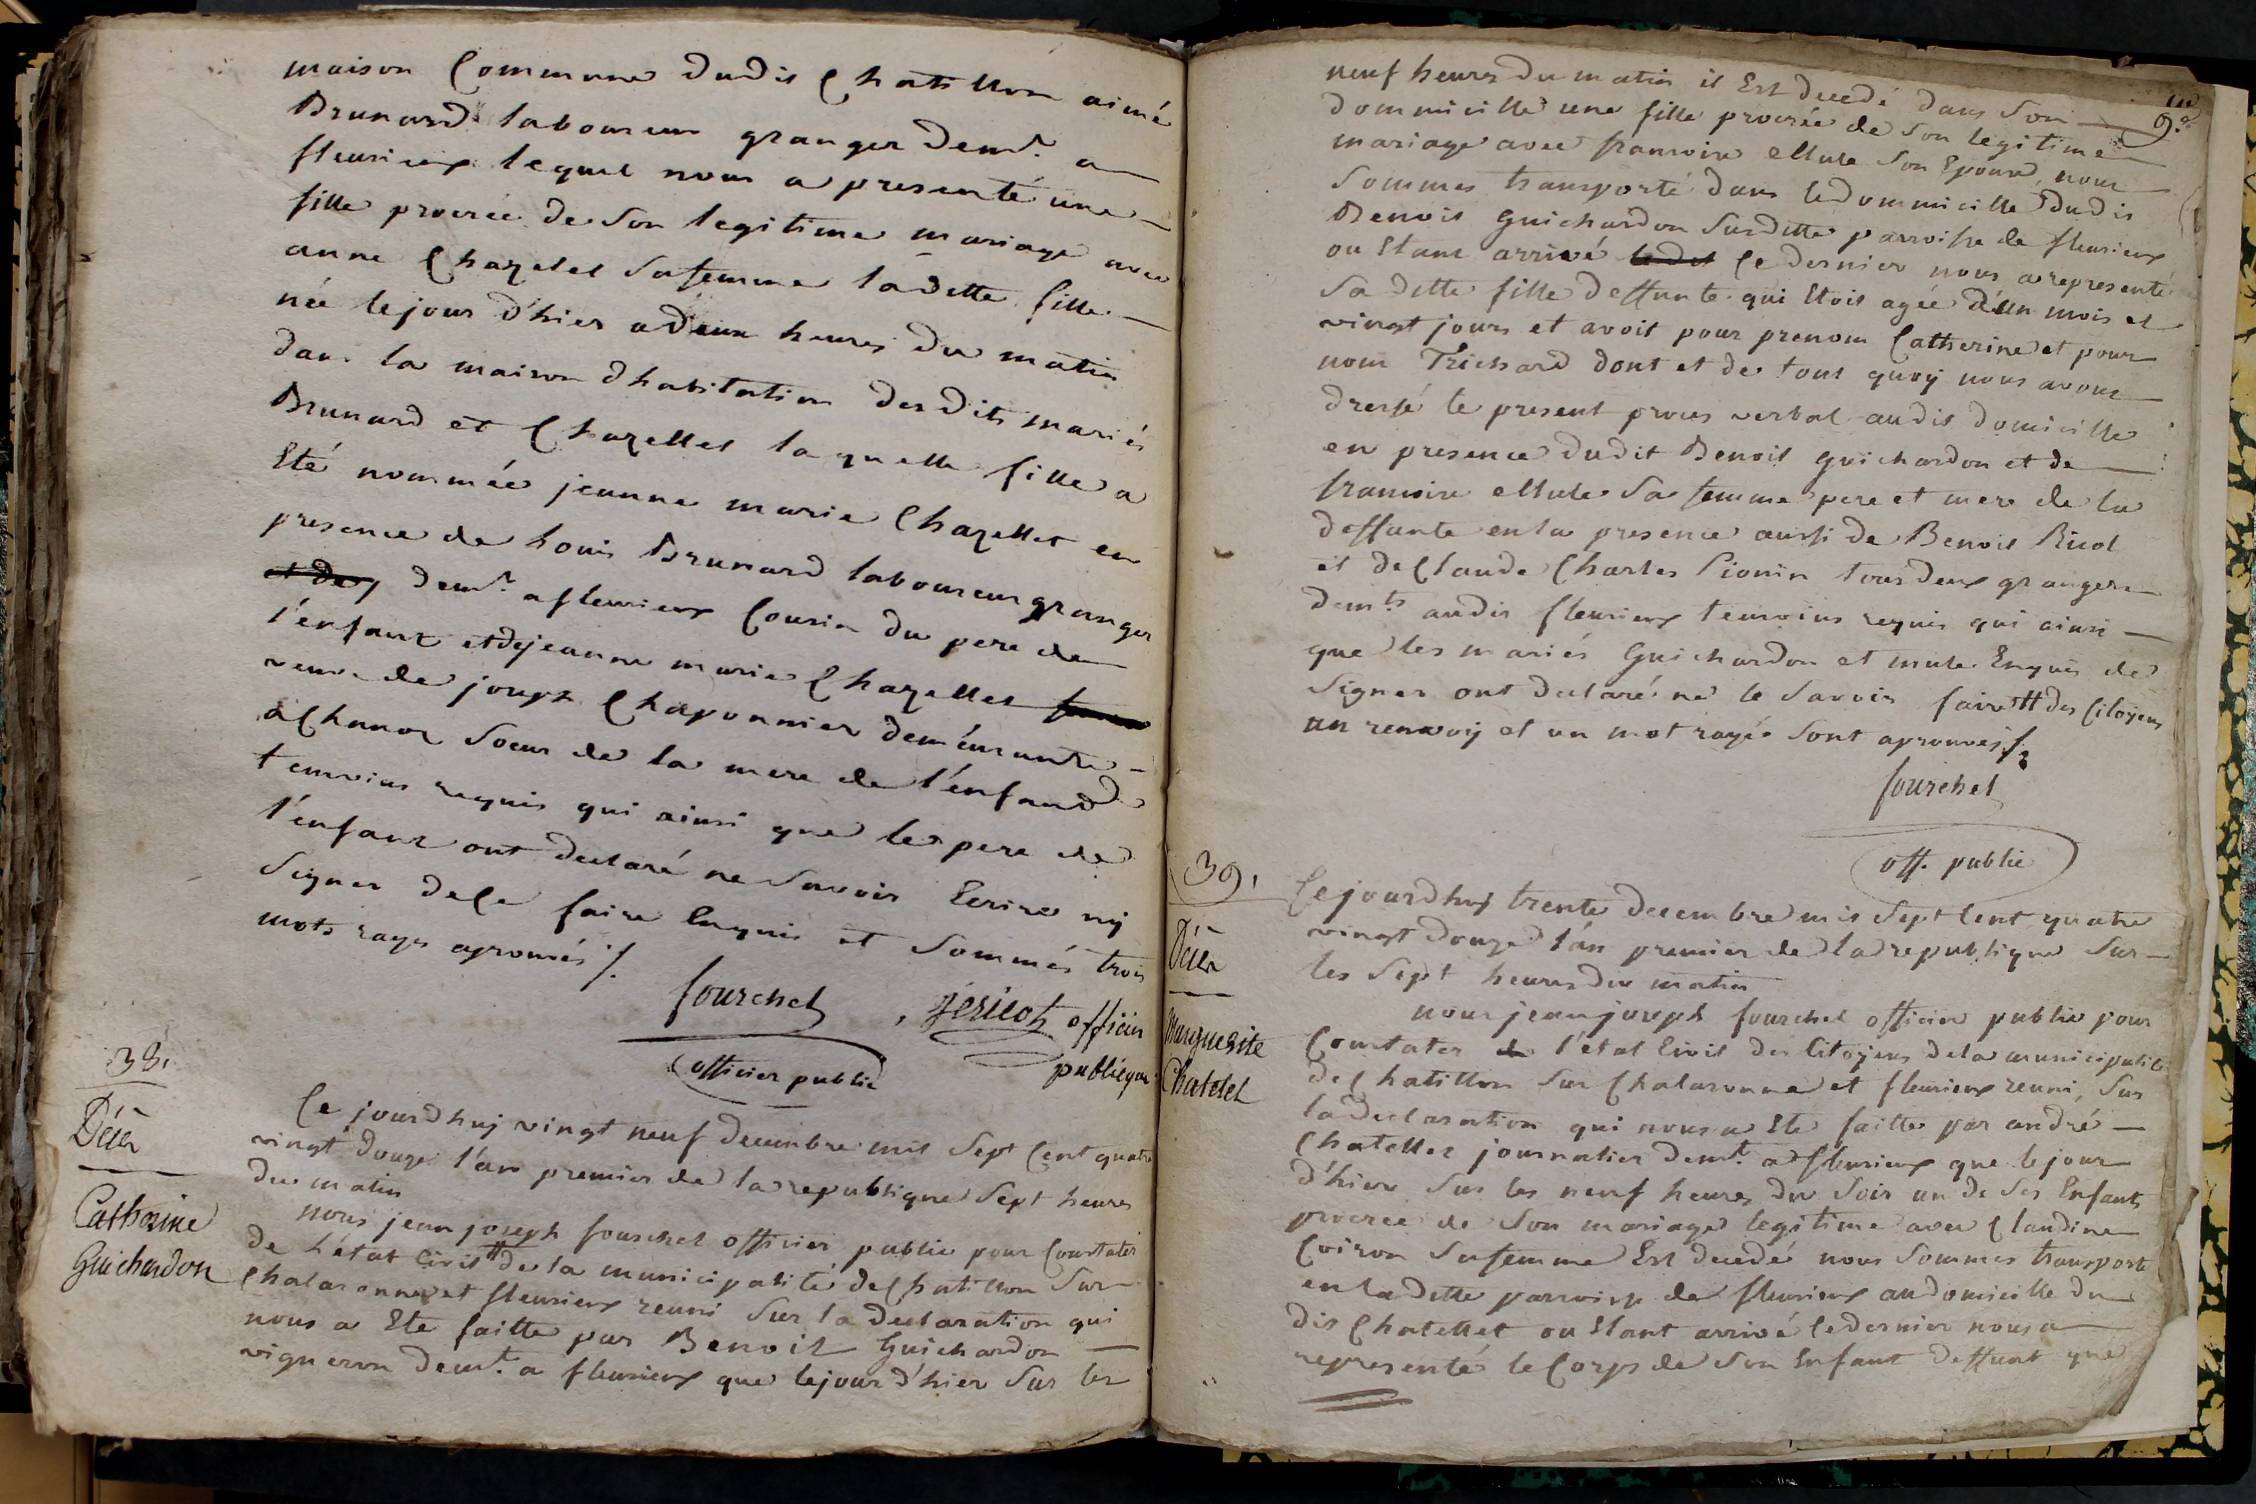 maison Commune dudit Chatillon aimé
Brunard laboureur granger demt. a
fleurieux lequel nous a presenté une
fille procréé de Son legitime mariage avec
anne Chazelet Sa femme ladette fille
née le jour d'hier a deux heures du matin
dans la maison d'habitation desdits mariés
Brunard et Chazellet laquelle fille a
Eté nommée jeanne marie Chazellet en
presence de Louis Brunard laboureur granger
demt. a fleurieux Cousin du pere de
l'enfant et de jeanne marie Chazellet
veuve de joseph Chaponnier demeurante
a Chanoz Soeur de la mere de l'enfand
temoins requis qui ainsi que le pere de
l'enfant ont declaré ne Savoir Ecrire ny
Signer de Ce faire Enquis et Sommés trois
mots rayés aprouvés /.
fourchet
officier public
, officier
publicque
38.
Décès
Catherine
Guichardon
Ce jourd'huy vingt neuf decembre mil Sept Cent quatre
vingt douze l'an premier de la republique Sept heures
du matin
nous jean joseph fourchet officier public pour Constater
de l'état Civil # de la municipalité de Chatillon Sur
Chalaronne et fleurieux reuni Sur la declaration qui
nous a Eté faitte par Benoit Guichardon
vigneron demt. a fleurieux que le jour d'hier Sur les
neuf heures du matin il Est decedé dans Son
dommicille une fille procréée de Son legitime
mariage avec francoise Mule Son Epouse, nous
Sommes transporté dans le dommicille dudit
Benoit Guichardon Susditte parroisse de fleurieux
ou Etant arrivé Ce dernier nous a representé
Sa ditte fille deffunte qui Etoit agée d'un mois et
vingt jours et avoit pour prenom Catherine et pour
nom Trichard dont et de tout quoy nous avons
dressé le present proces verbal audit domicille
en presence dudit Benoit Guichardon et de
francoise Mule Sa femme pere et mere de la
deffunte en la presence aussi de Benoit
et de Claude Charles Pionin tous deux grangers
demts. audit fleurieux temoins requis qui ainsi
que les mariés Guichardon et mule Enquis de
Signer ont declaré ne le Savoir faire # des Citoyens
un renvoy et un mot rayés Sont aprouvés /.
fourchet
off. public
39.
Décès
Marguerite
Chatelet
Ce jourd'huy trente decembre mil Sept Cent quatre
vingt douze l'an premier de la republique Sur
les Sept heures du matin
nous jean joseph fourchet officier public pour
Constater l'etat Civil des Citoyens de la municipalité
de Chatillon Sur Chalaronne et fleurieux reuni, Sur
la declaration qui nous a Eté faitte par andré
Chatellet journalier demt. a fleurieux que le jour
d'hier Sur les neuf heures du Soir un de Ses Enfants
procréé de Son mariage legitime avec Claudine
Coiron Sa femme Est decedé nous Sommes transporté
en ladette parroisse de fleurieux au domicille du
dit Chatellet ou Etant arrivé Ce dernier nous a
representé le Corps de Son Enfant deffunt que